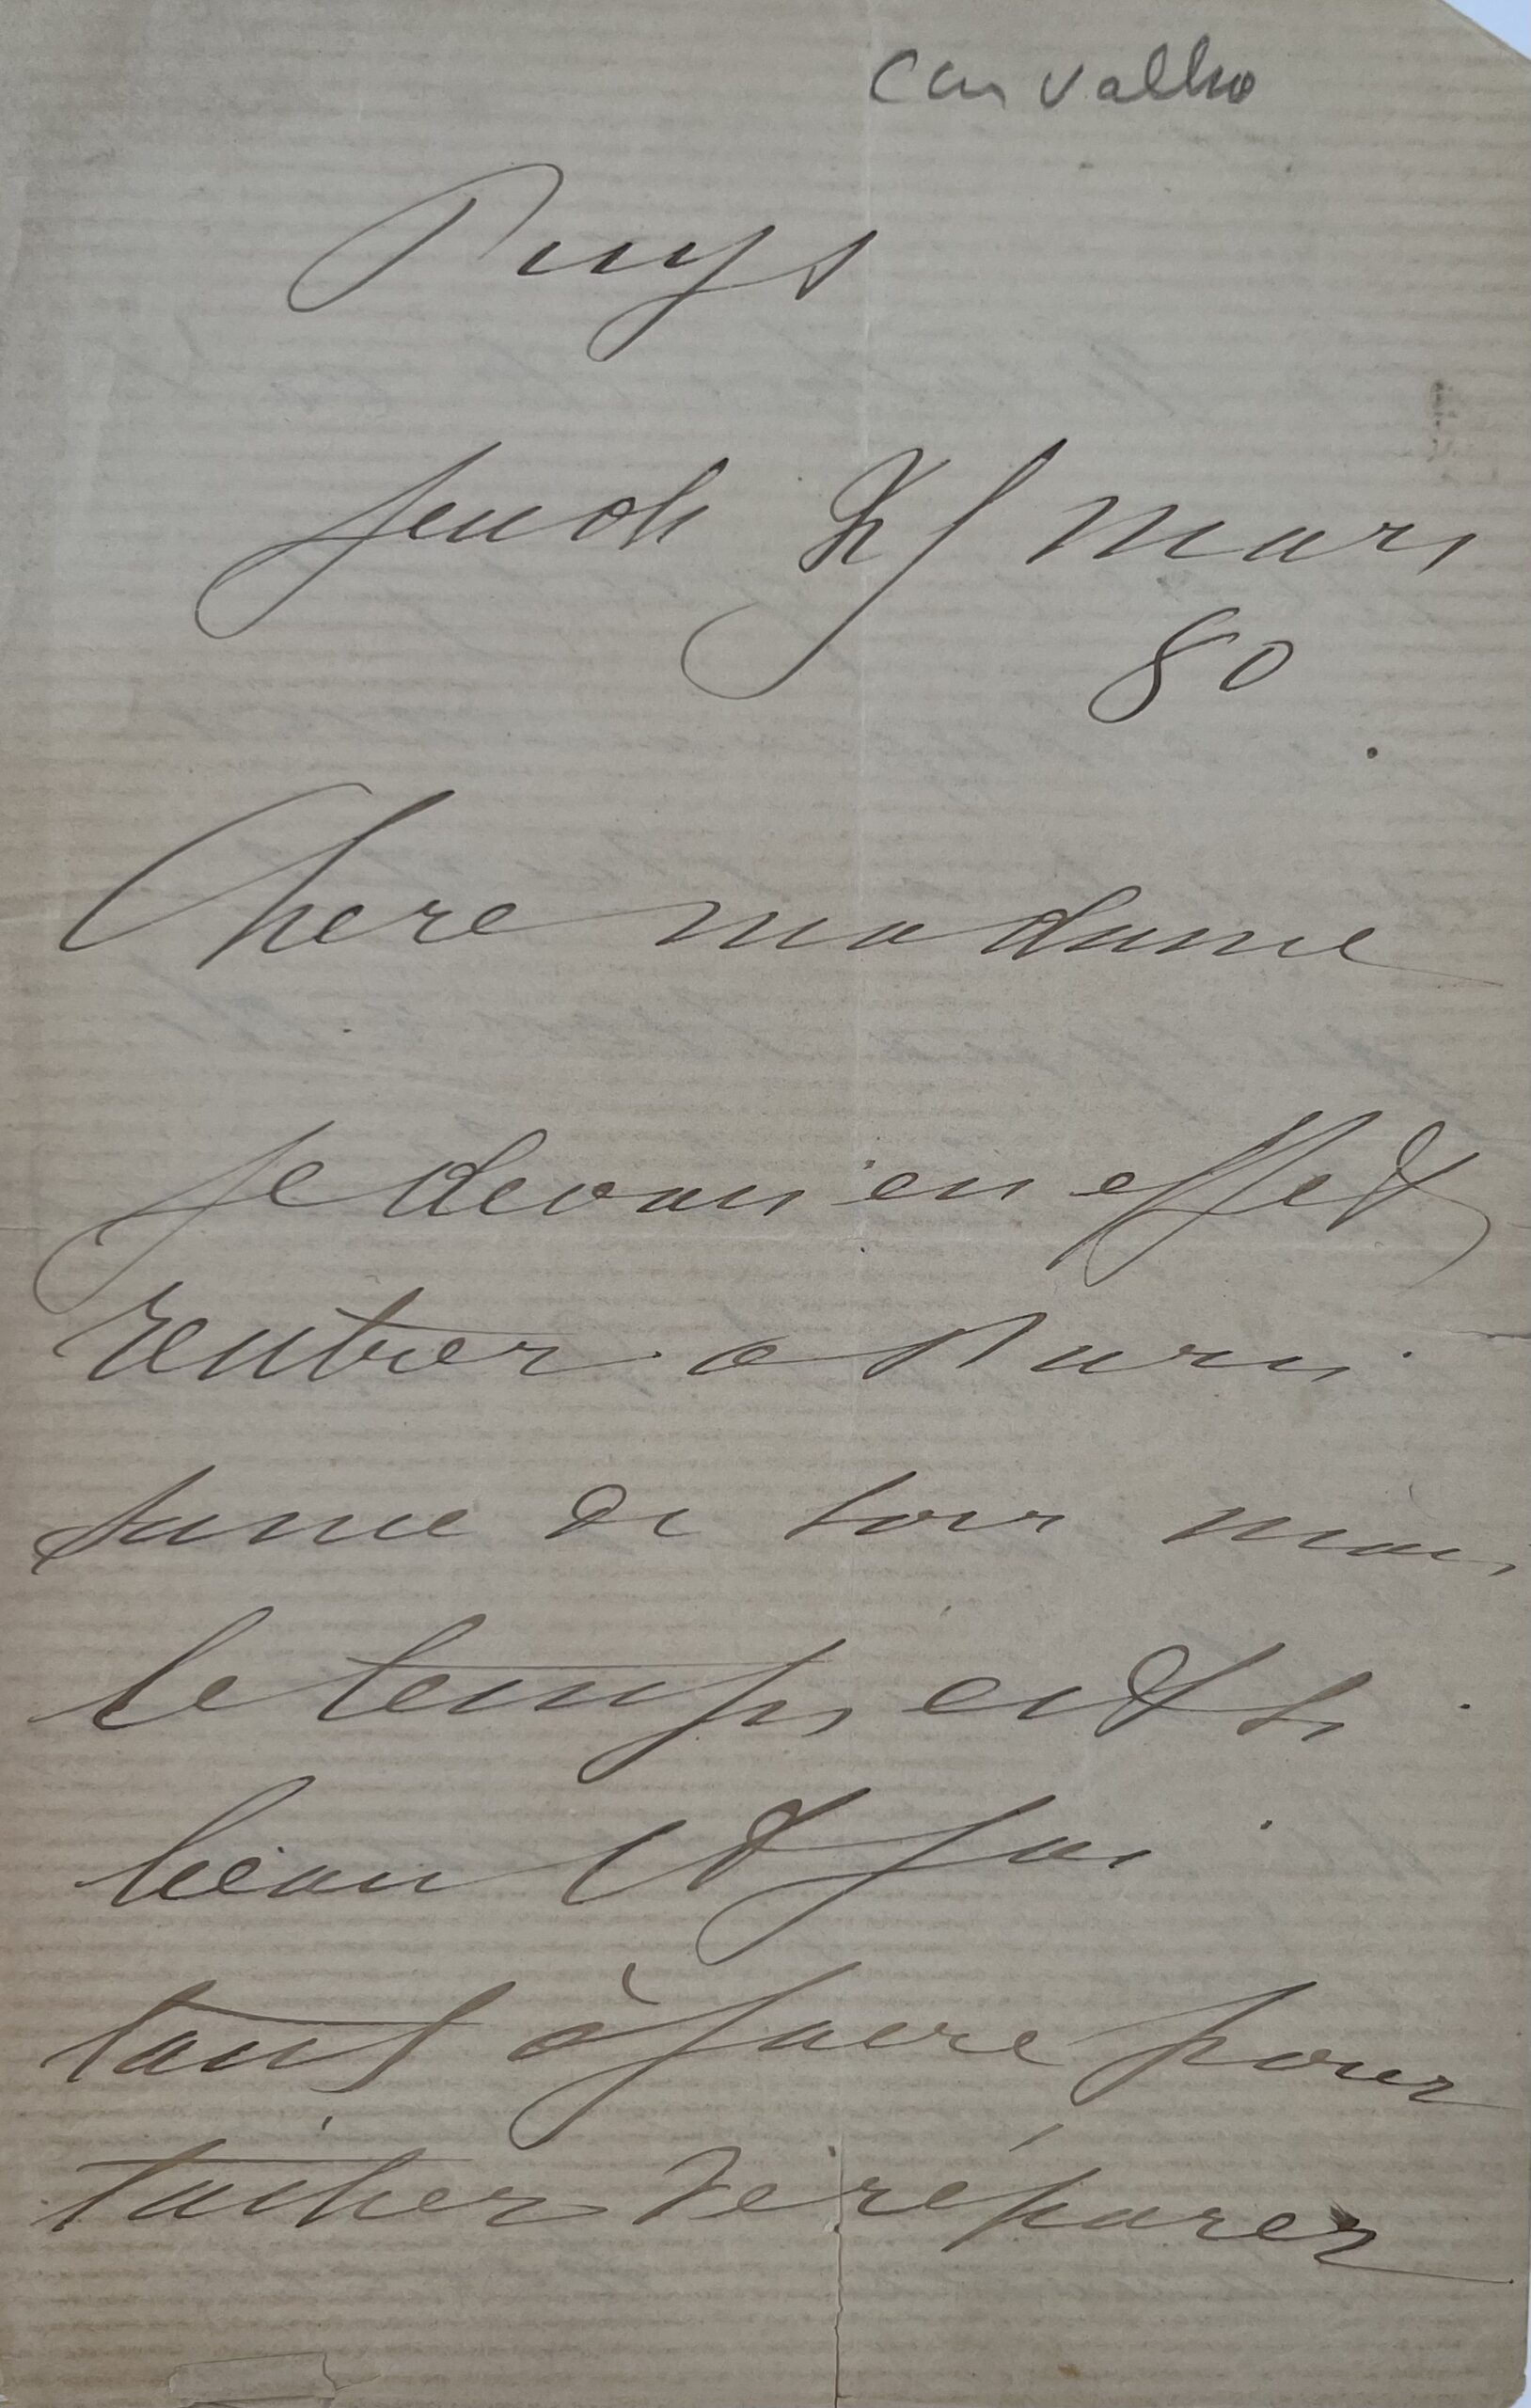 Carvalho
Puys
Jeudi 25 mars
80
Chere madame
Je devais en effet
rentrer a Paris
samedi soir mais
le temps est si
beau et j'ai
tant à faire pour
tacher de réparer